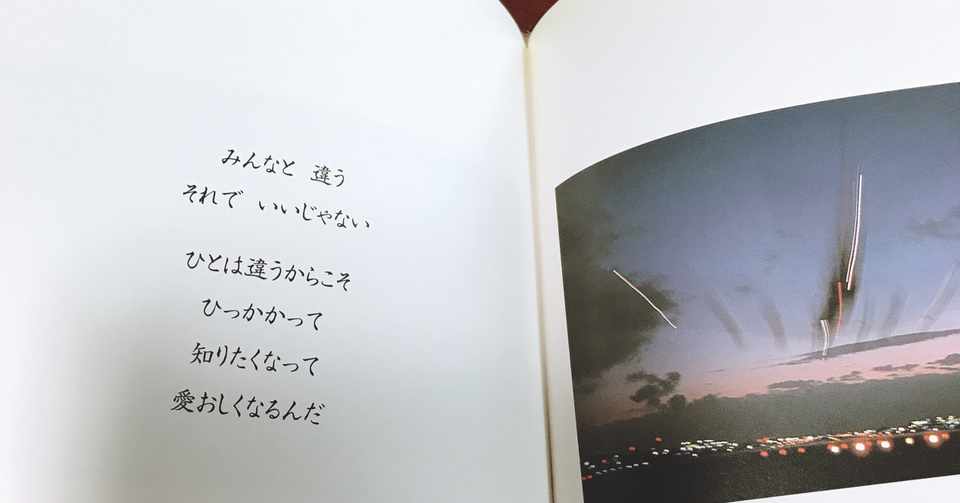 みんなと 違う
それで いいじゃない
ひとは違うからこそ
ひっかかって
知りたくなって
愛おしくなるんだ